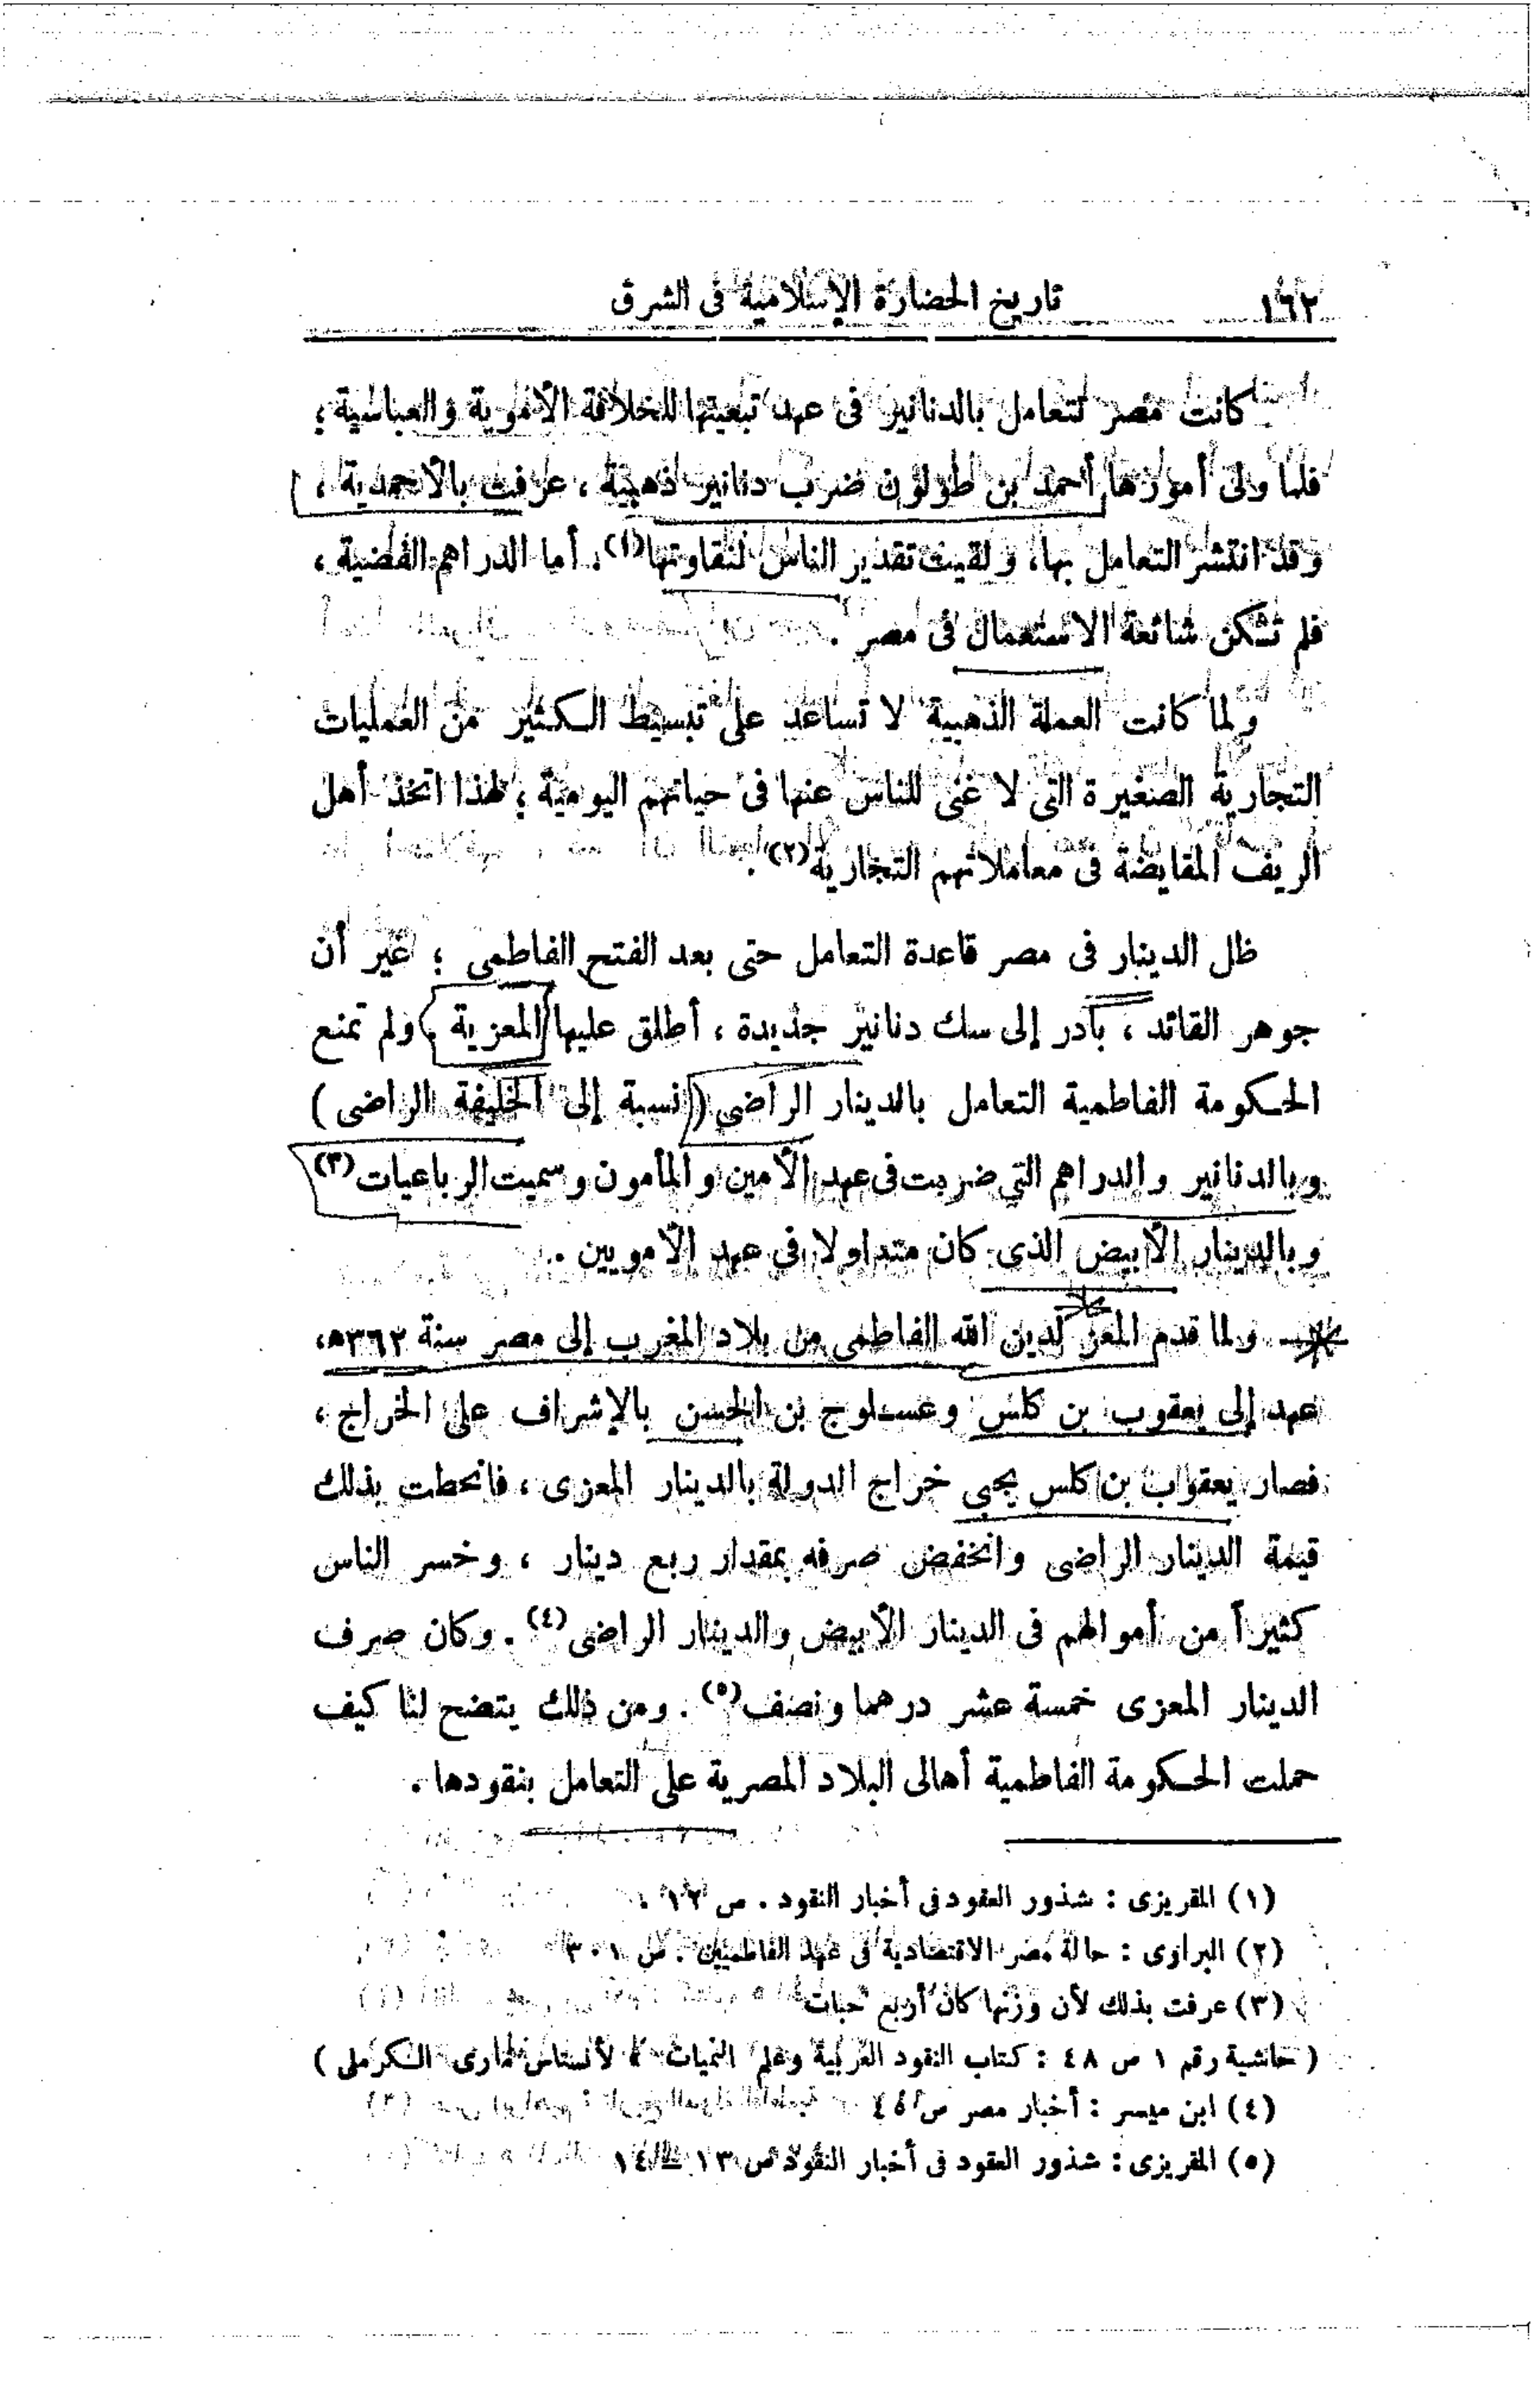 ١٦٢ تاريخ الحضارة الإسلامية فى الشرق
كانت مصر تتعامل بالدنانير فى عهد تبعيتها للخلافة الأموية والعباسية ؛
فلما ولى أمورها أحمد بن طولون ضرب دنانير ذهبية ، عرفت بالأحمدية ،
وقد انتشر التعامل بها ، ولقيت تقدير الناس لنقاوتها(١) . أما الدراهم الفضية ،
فلم تكن شائعة الاستعمال فى مصر .
ولما كانت العملة الذهبية لا تساعد على تبسيط الكثير من العمليات
التجارية الصغيرة التى لا غنى للناس عنها فى حياتهم اليومية ؛ لهذا اتخذ أهل
الريف المقايضة فى معاملاتهم التجارية(٢) .
ظل الدينار فى مصر قاعدة التعامل حتى بعد الفتح الفاطمى ؛ غير أن
جوهر القائد ، بادر إلى سك دنانير جديدة ، أطلق عليها المعزية ، ولم تمنع
الحكومة الفاطمية التعامل بالدينار الراضى ( نسبة إلى الخليفة الراضى )
وبالدنانير والدراهم التي ضربت فى عهد الأمين والمأمون وسميت الرباعيات(٣)
وبالدينار الأبيض الذى كان متداولا فى عهد الأمويين .
ولما قدم المعز لدين الله الفاطمى من بلاد المغرب إلى مصر سنة ٣٦٢ه ،
عهد إلى يعقوب بن كلس وعسلوج بن الحسن بالإشراف على الخراج ،
فصار يعقوب بن كلس يجبى خراج الدولة بالدينار المعزى ، فانحطت بذلك
قيمة الدينار الراضى وانخفض صرفه بمقدار ربع دينار ، وخسر الناس
كثيراً من أموالهم فى الدينار الأبيض والدينار الراضى(٤) . وكان صرف
الدينار المعزى خمسة عشر درهما ونصف(٥) . ومن ذلك يتضح لنا كيف
حملت الحكومة الفاطمية أهالى البلاد المصرية على التعامل بنقودها .
(١) المقريزى : شذور العقود فى أخبار النقود . ص ١٢ .
(٢) البراوى : حالة مصر الاقتصادية فى عهد الفاطميين . ص ٣٠١
(٣) عرفت بذلك لأن وزنها كان أربع حبات
( حاشية رقم ١ ص ٤٨ : كتاب النقود العربية وعلم النميات لأنستاس مارى الكرملى )
(٤) ابن ميسر : أخبار مصر ص ٤٥
(٥) المقريزى : شذور العقود فى أخبار النقود ص ١٣ – ١٤